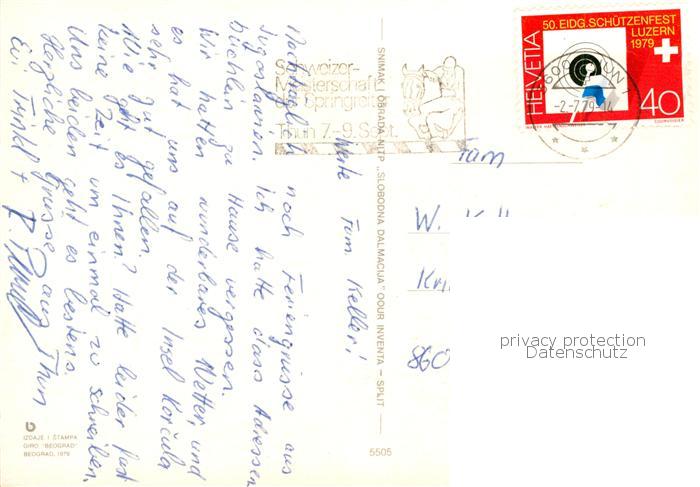 Werte Fam. Keller!
Nachträglich noch Feriengrüsse aus
Jugoslavien. Ich hatte dass Adressen
büchlein zu Hause vergessen.
Wir hatten wunderbares Wetter, und
es hat uns auf der Insel Korčula
sehr gut gefallen.
Wie geht es Ihnen? Hatte leider fast
keine Zeit um einmal zu schreiben.
Uns beiden geht es bestens.
Herzliche Grüsse aus Thun
Evi Trinkl +
SNIMAK I OBRADA NITP „SLOBODNA DALMACIJA" OOUR INVENTA — SPLIT
IZDAJE I ŠTAMPA
GIRO "BEOGRAD"
BEOGRAD, 1979
5505
Schweizer-
Meisterschaft
Springreiten
Thun 7.-9. Sept.
THUN 1
-2-7.79
HELVETIA
50. EIDG. SCHÜTZENFEST
LUZERN
1979
40
COURVOISIER
Fam
W. Kell
860
privacy protection
Datenschutz